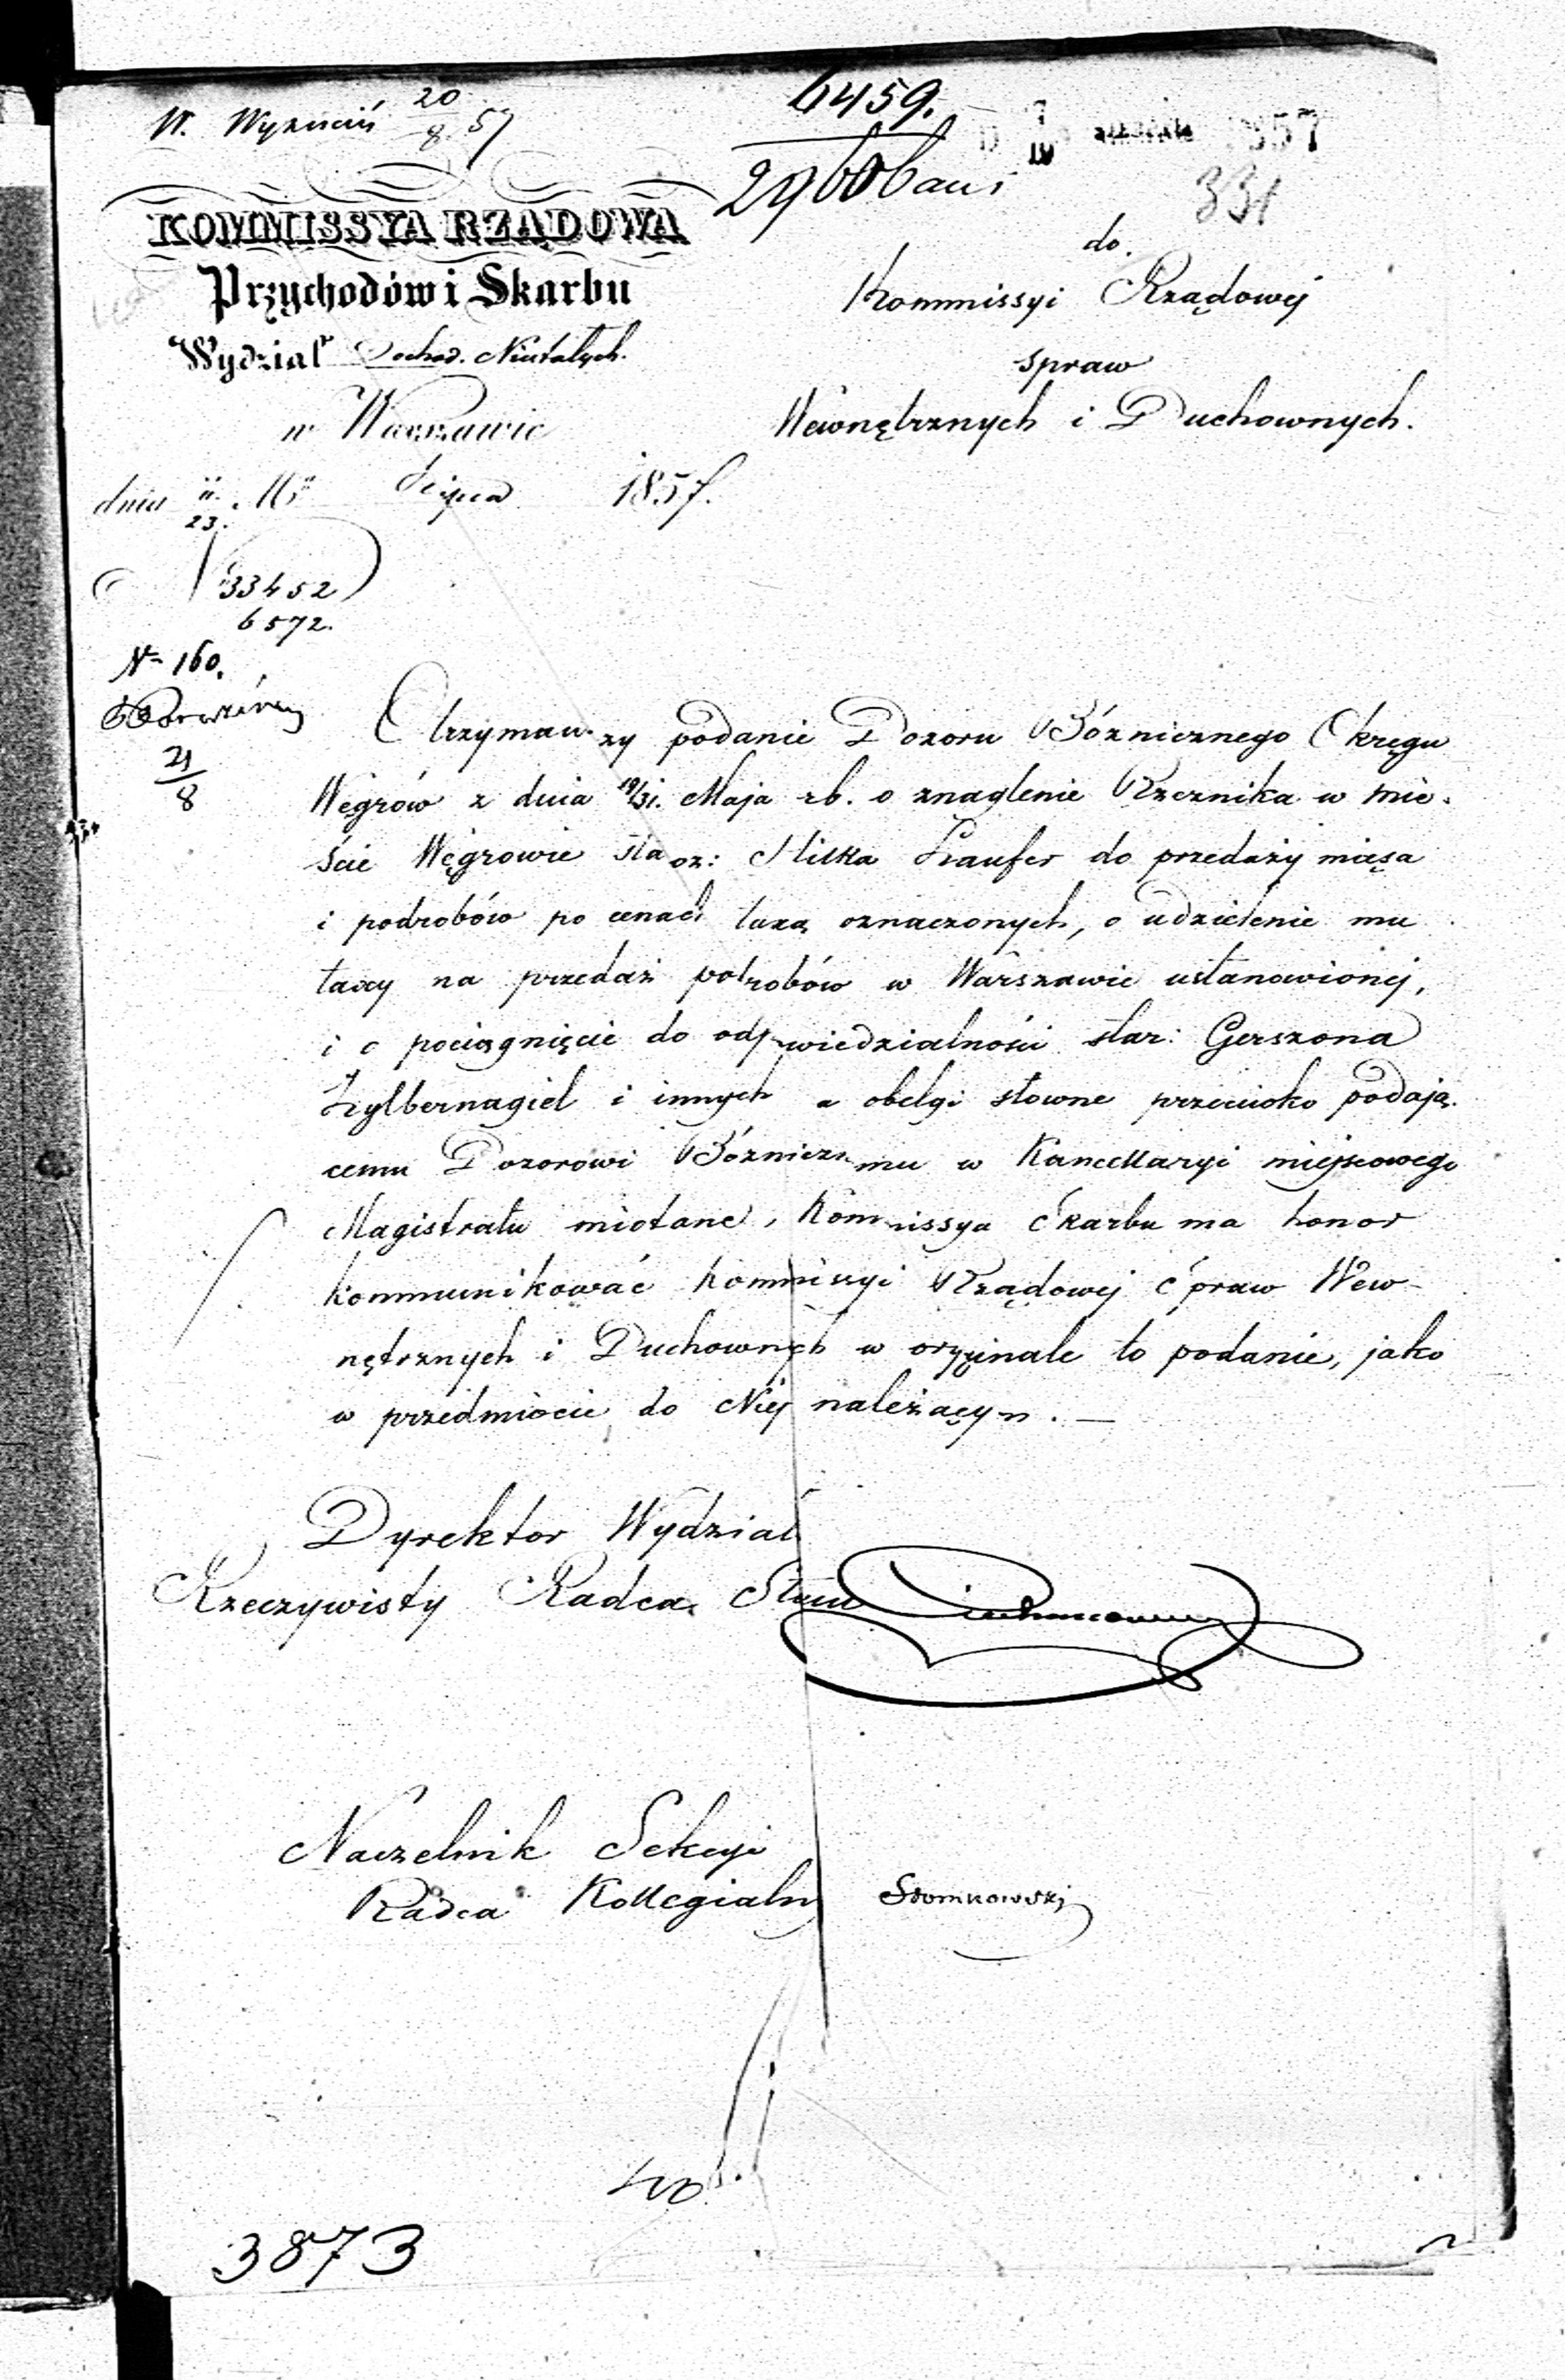 W. Wyznań 20/8 57
6459.
29606
1857
331
KOMMISSYA RZĄDOWA
Przychodów i Skarbu
Wydział Dochod. Niestałych.
w Warszawie
dnia 11/23. Lipca 1857.
do
Kommissyi Rządowej
Spraw
Wewnętrznych i Duchownych.
33452
6572.
N- 160.
21/8
Otrzymawszy podanie Dozoru Bóżnicznego Okręgu
Węgrów z dnia 19/31. Maja rb. o znaglenie Rzeznika w mie-
ście Węgrowie staroz: Laufer do przedaży mięsa
i podrobów po cenach taxą oznaczonych, o udzielenie mu
taxy na przedaż podrobów w Warszawie ustanowionej,
i o pociągnięcie do odpowiedzialności star: Gerszona
Zylbernagiel i innych o obelgi słowne przeciwko podają-
cemu Dozorowi Bóżniczemu w Kancellaryi miejscowego
Magistratu miotane, Kommissya Skarbu ma honor
kommunikować Kommissyi Rządowej Spraw Wew-
nętrznych i Duchownych w oryginale to podanie, jako
w przedmiocie do Niej należącym. —
Dyrektor Wydziału
Rzeczywisty Radca Stanu
Naczelnik Sekcyi
Radca Kollegialny Słomkowski
3873